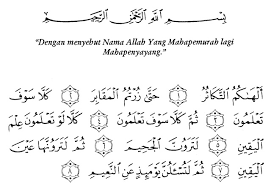 بِسْمِ اللَّهِ الرَّحْمَٰنِ الرَّحِيمِ
“Dengan menyebut Nama Allah Yang Mahapemurah lagi
Mahapenyayang.”
أَلْهَىٰكُمُ التَّكَاثُرُ ۝١ حَتَّىٰ زُرْتُمُ الْمَقَابِرَ ۝٢ كَلَّا سَوْفَ
تَعْلَمُونَ ۝٣ ثُمَّ كَلَّا سَوْفَ تَعْلَمُونَ ۝٤ كَلَّا لَوْ تَعْلَمُونَ عِلْمَ
الْيَقِينِ ۝٥ لَتَرَوُنَّ الْجَحِيمَ ۝٦ ثُمَّ لَتَرَوُنَّهَا عَيْنَ
الْيَقِينِ ۝٧ ثُمَّ لَتُسْـَٔلُنَّ يَوْمَئِذٍ عَنِ النَّعِيمِ ۝٨